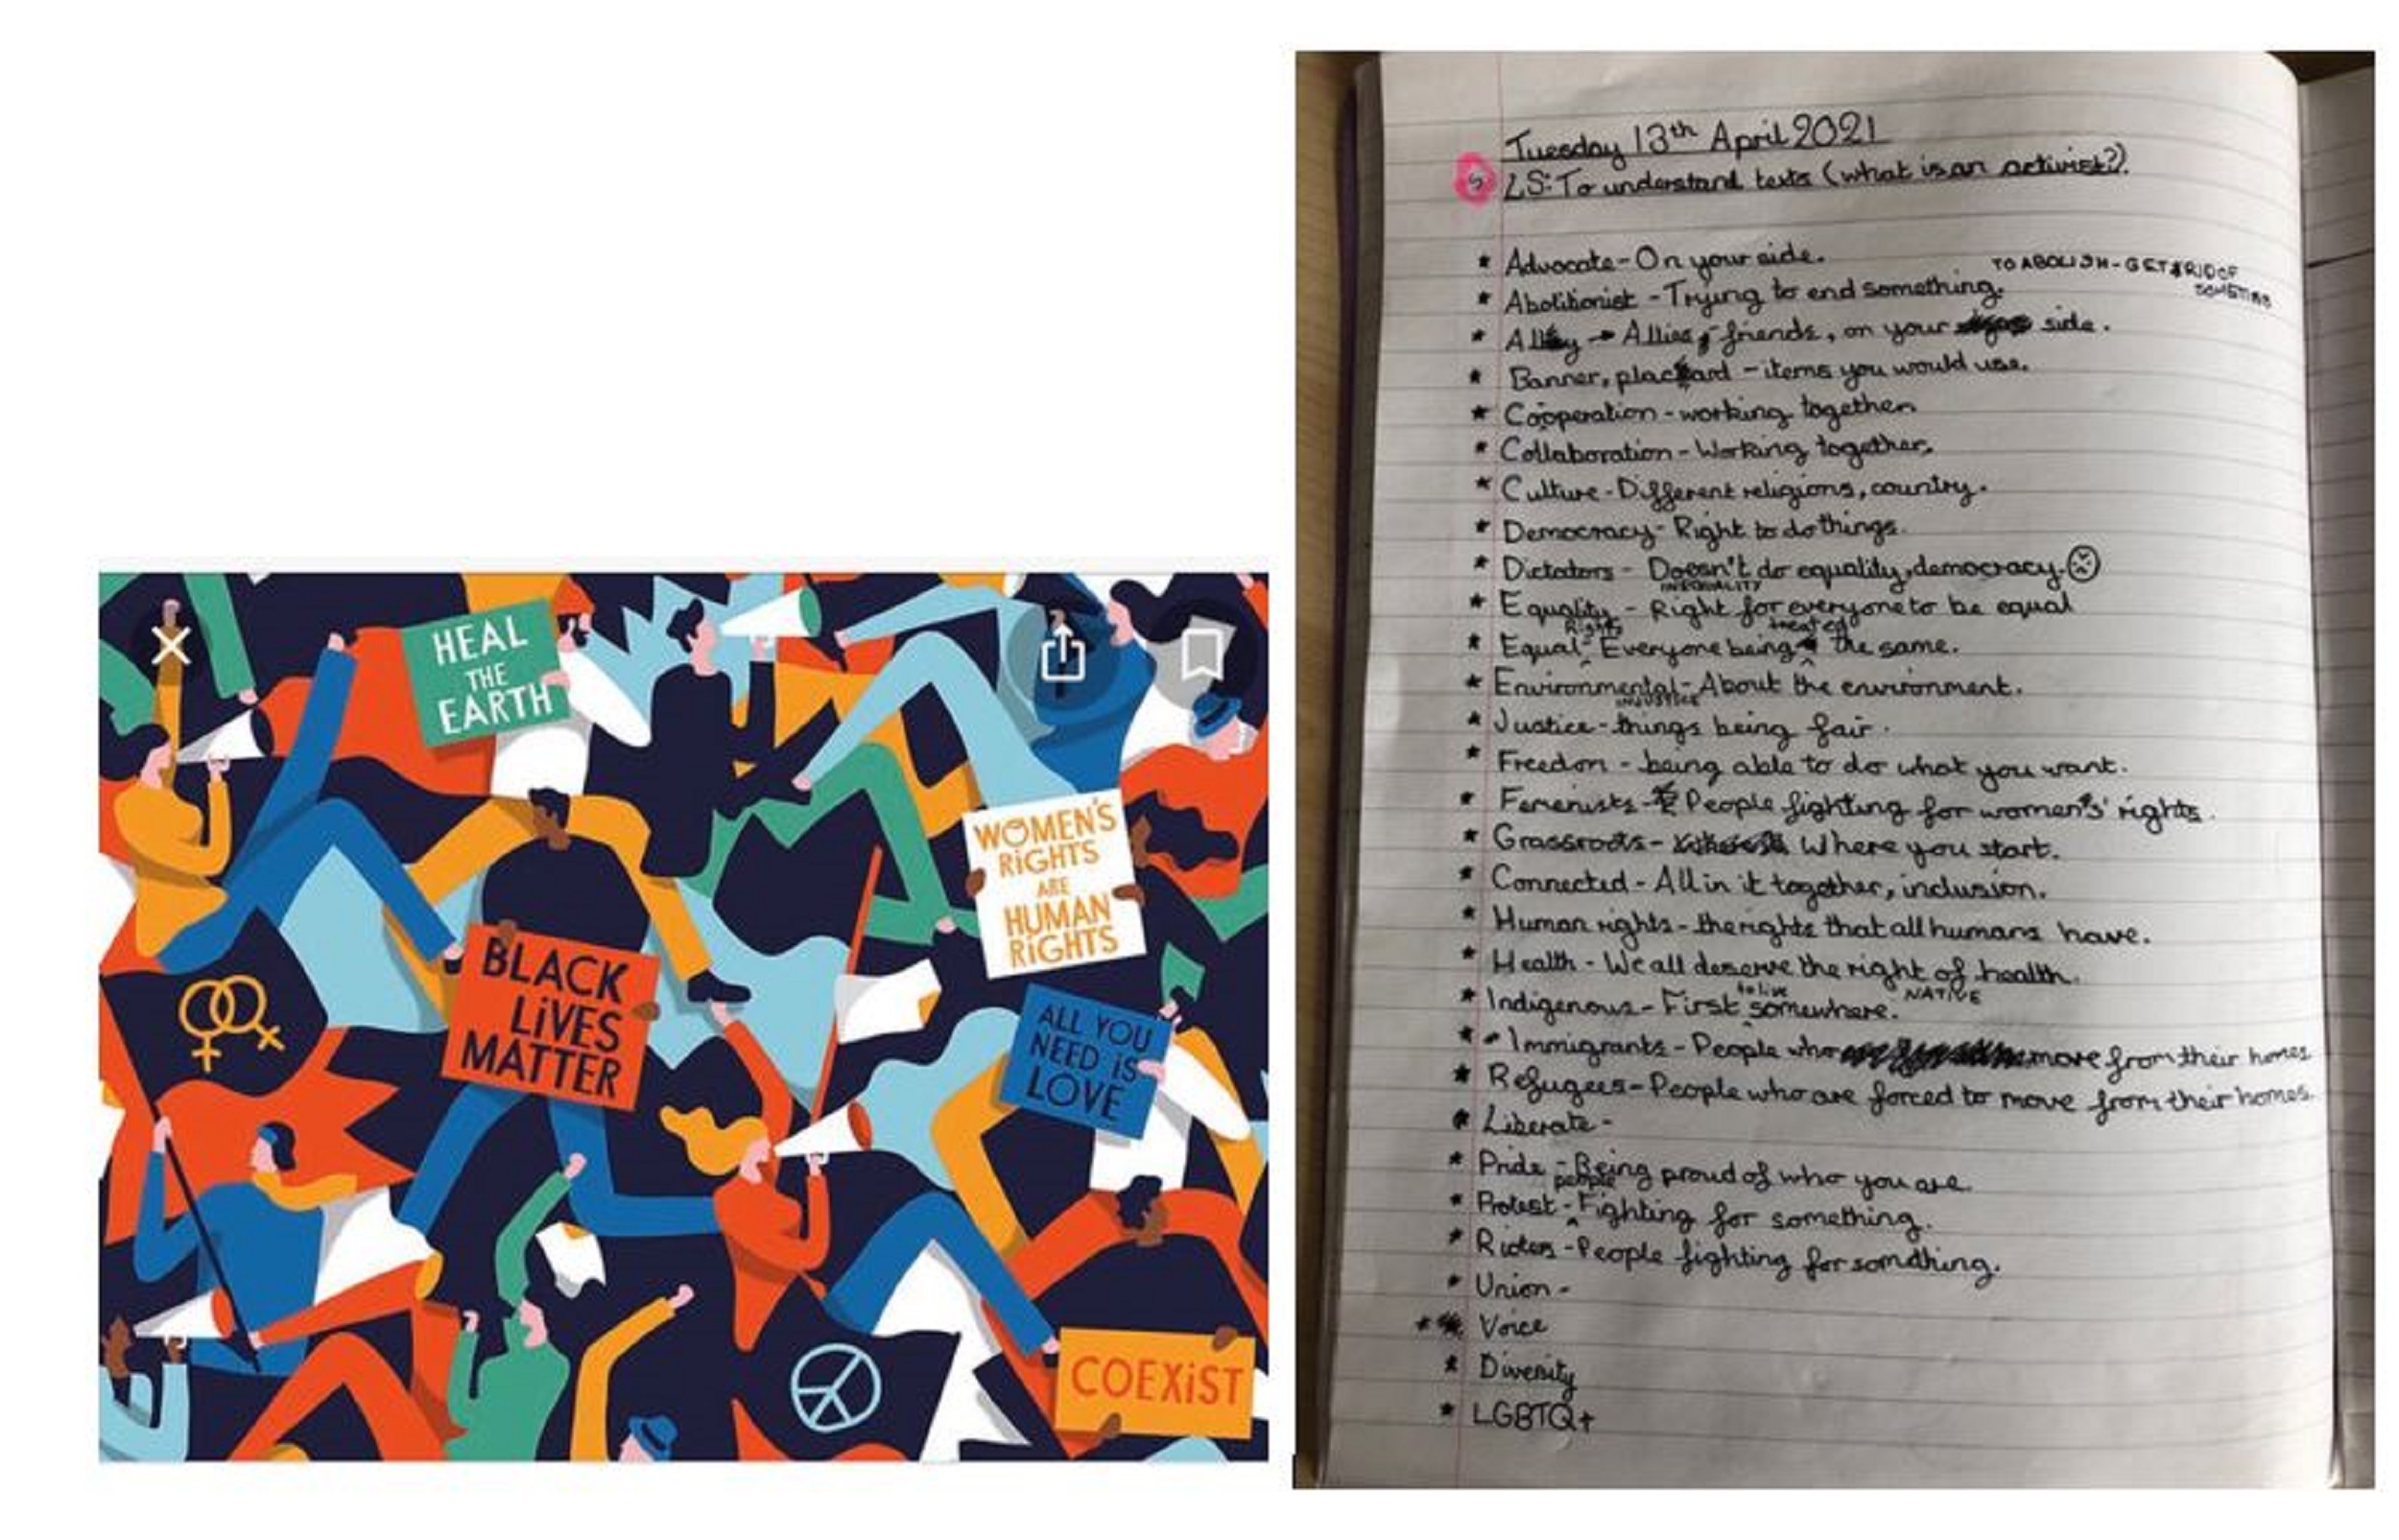 HEAL
THE
EARTH
WOMEN'S
RIGHTS
ARE
HUMAN
RIGHTS
BLACK
LIVES
MATTER
ALL YOU
NEED IS
LOVE
COEXIST
Tuesday 13th April 2021
S LS: To understand texts (what is an activist?).
* Advocate - On your side.
TO ABOLISH - GET RID OF
* Abolitionist - Trying to end something.
* Ally → Allies, friends, on your side.
* Banner, placard - items you would use.
* Cooperation - working together.
* Collaboration - Working together.
* Culture - Different religions, country.
* Democracy - Right to do things.
* Dictators - Doesn't do equality, democracy.
INEQUALITY
* Equality - Right for everyone to be equal
Rights treated
* Equal - Everyone being the same.
* Environmental - About the environment.
INJUSTICE
* Justice - things being fair.
* Freedon - being able to do what you want.
* Femenists - People fighting for women's' rights.
* Grassroots - Where you start.
* Connected - All in it together, inclusion.
* Human rights - the rights that all humans have.
* Health - We all deserve the right of health.
to live NATIVE
* Indigenous - First somewhere.
* - Immigrants - People who move from their homes.
* Refugees - People who are forced to move from their homes.
* Liberate -
* Pride - Being proud of who you are.
people
* Protest - Fighting for something.
* Rioters - People fighting for somdthing.
* Union -
* Voice
* Diversity
* LGBTQ+